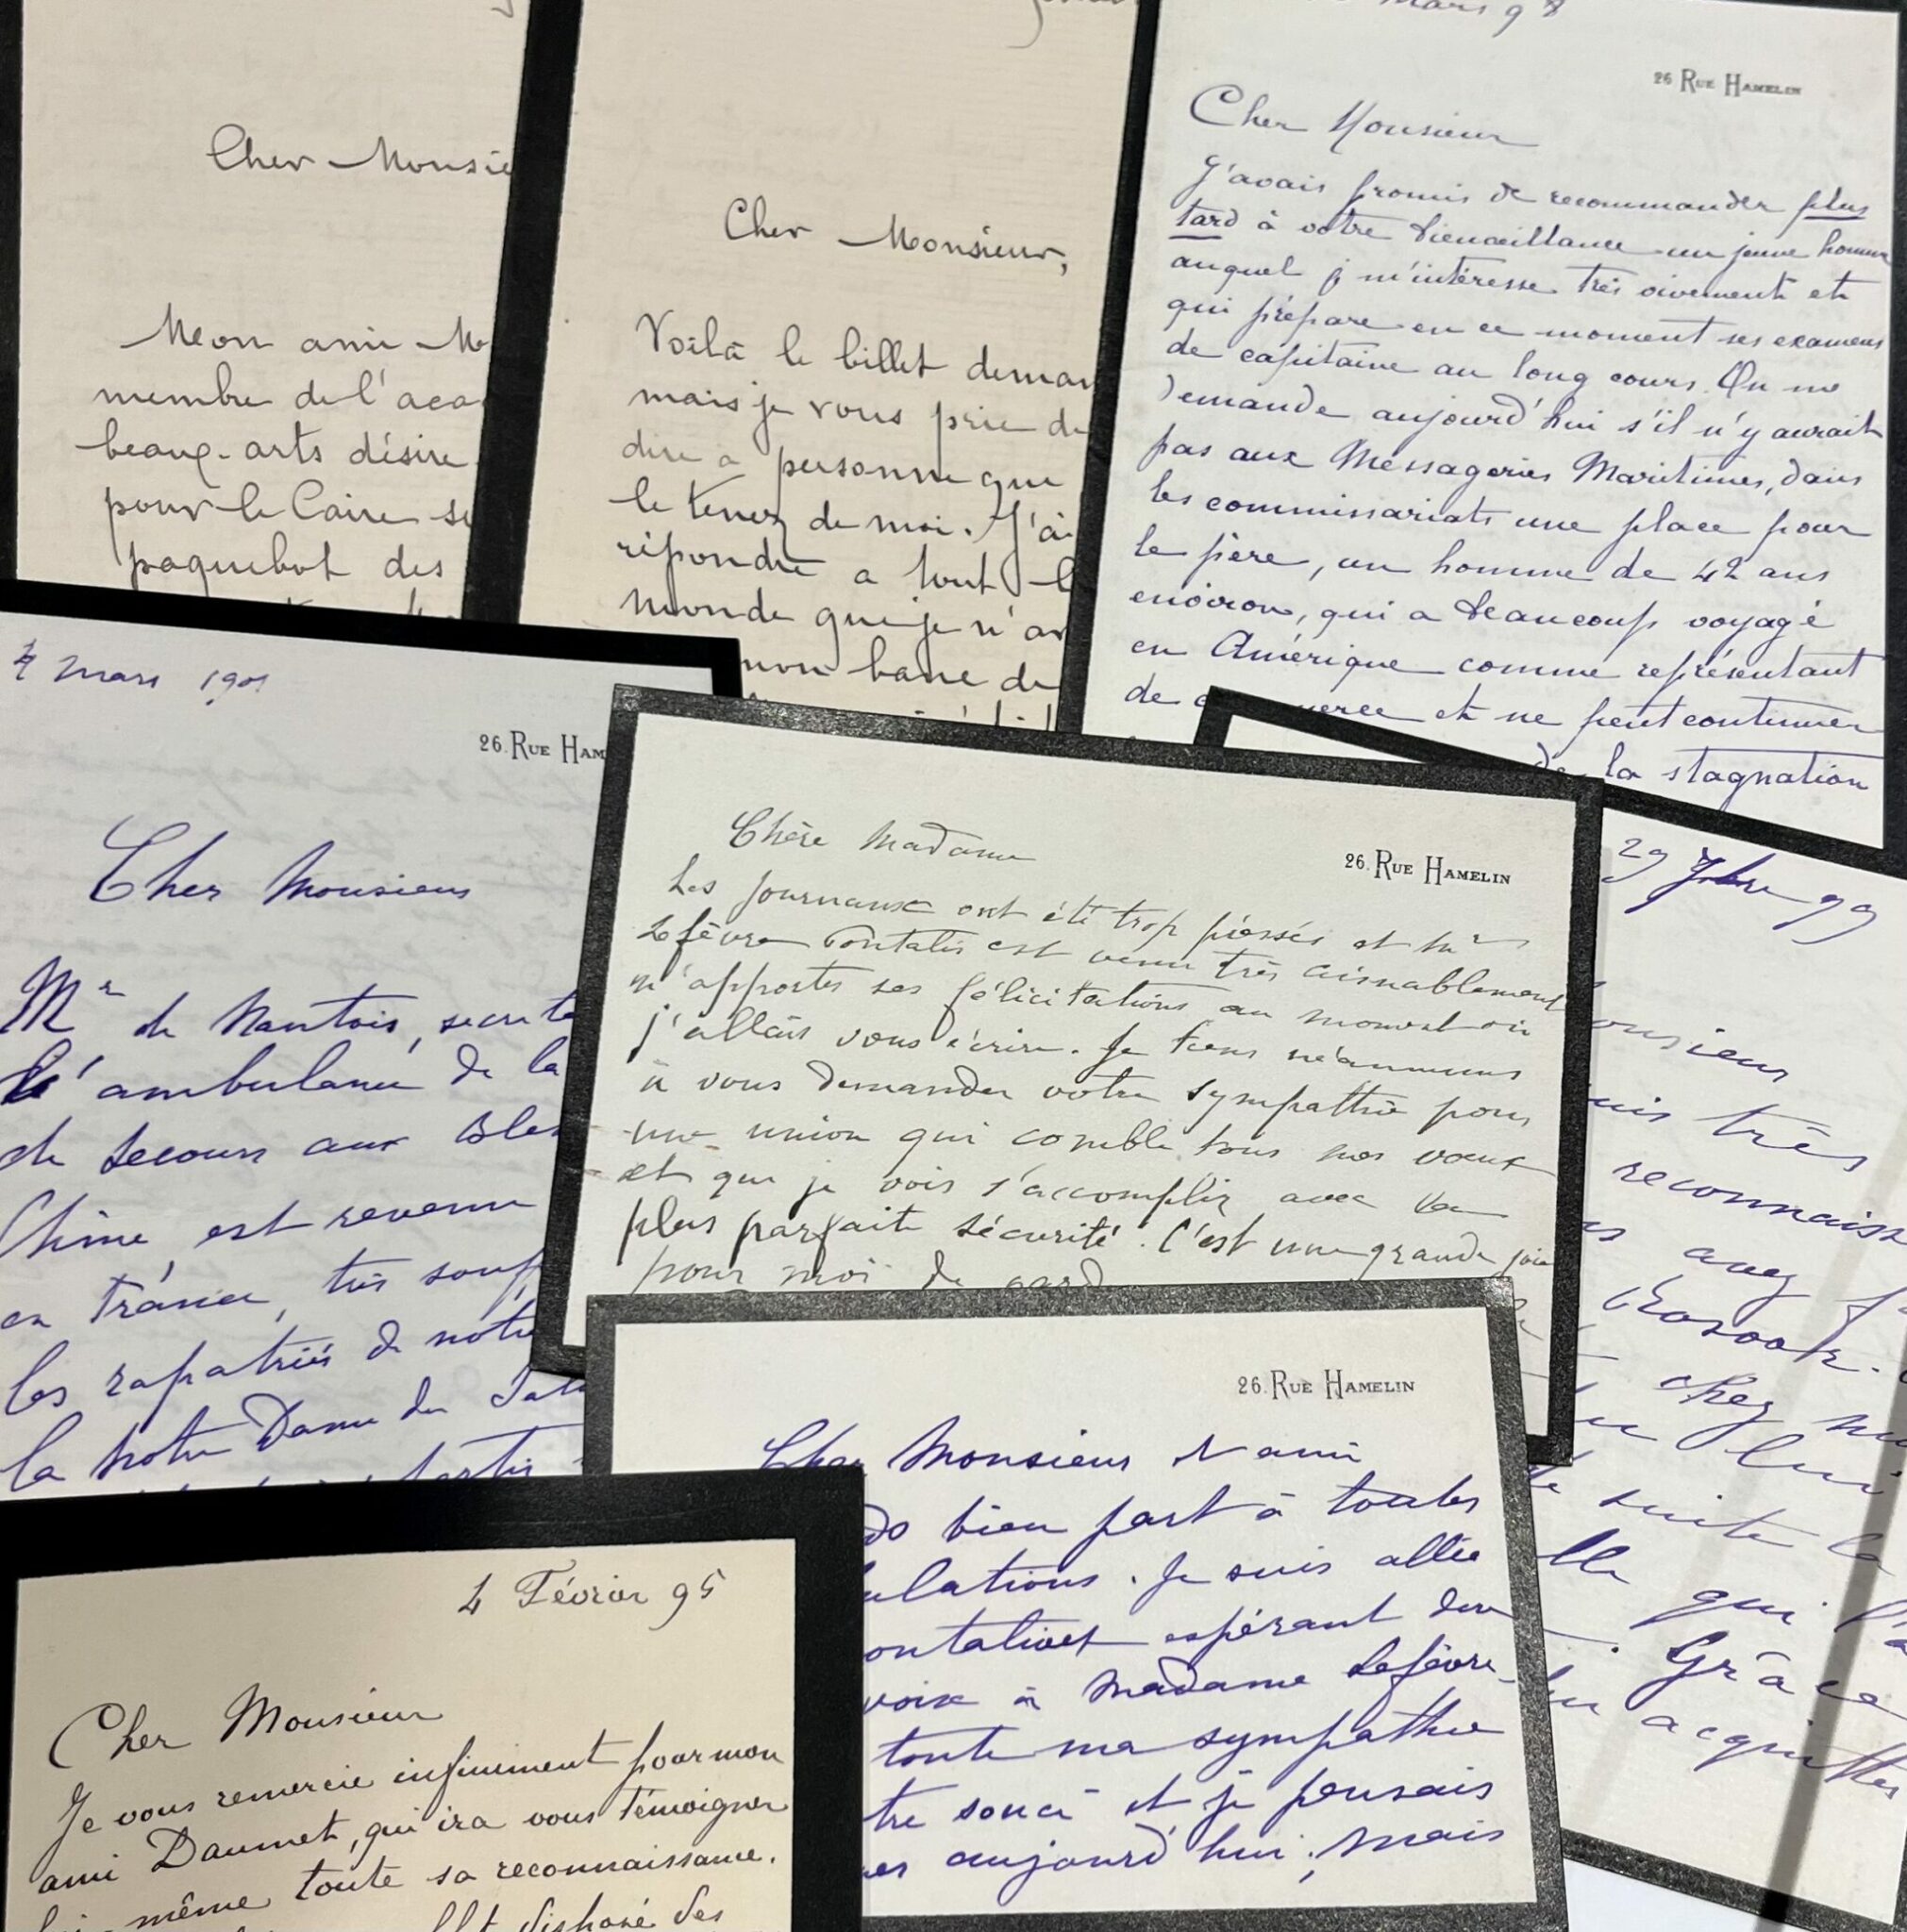 Cher Monsie
Mon ami M
membre de l'aca
beaux-arts désire
pour le Caire su
paquebot des
Cher Monsieur,
Voilà le billet deman
mais je vous prie de
dire a personne que
le tenez de moi. J'ai
répondu a tout l
monde que je n'av
mon banc de
Mars 98
26 Rue Hamelin
Cher Monsieur
J'avais promis de recommander plus
tard à votre bienveillance un jeune homme
auquel je m'intéresse très vivement et
qui prépare en ce moment ses examens
de capitaine au long cours. On me
demande aujourd'hui s'il n'y aurait
pas aux Messageries Maritimes, dans
les commissariats une place pour
le père, un homme de 42 ans
environ, qui a beaucoup voyagé
en Amérique comme représentant
de merce et ne peut continuer
de la stagnation
Mars 1901
26. Rue Ham
Cher Monsieur
Mr de Nantois, secréta
l'ambulance de la
de Secours aux Bles
Chine, est revenu
en France, très souf
les rapatriés de notre
la Notre Dame du Salu
Chère Madame
26. Rue Hamelin
Les journaux ont été trop pressés et Mr
Lefèvre Pontalis est venu très aimablement
m'apporter ses félicitations au moment où
j'allais vous écrire. Je tiens néanmoins
à vous demander votre sympathie pour
une union qui comble tous nos voeux
et que je vois s'accomplir avec la
plus parfaite sécurité. C'est une grande joie
pour moi de gard
29 7bre 99
onsieur
uis très
reconnaiss
avez f
chez
lui
suite la
lle qui l'a
Grâce
acquitter
26. Rue Hamelin
Cher Monsieur et ami
ds bien part à toutes
ulations. Je suis allée
ontalivet espérant dire
voix à Madame Lefèvre-
toute ma sympathie
tre souci et je pensais
aujourd'hui; Mais
4 Février 95
Cher Monsieur
Je vous remercie infiniment pour mon
ami Daumet, qui ira vous témoigner
lui-même toute sa reconnaissance.
disposé des